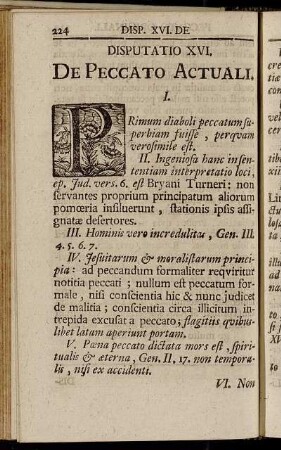 224 DISP. XVI. DE
DISPUTATIO XVI.
DE PECCATO ACTUALI.
I.
PRimum diaboli peccatum su-
perbiam fuisse, perqvam
verosimile est.
II. Ingeniosa hanc in sen-
tentiam interpretatio loci,
ep. Jud. vers. 6. est Bryani Turneri: non
servantes proprium principatum aliorum
pomœria insiluerunt, stationis ipsis assi-
gnatæ desertores.
III. Hominis vero incredulitas, Gen. III.
4. 5. 6. 7.
IV. Jesuitarum & moralistarum princi-
pia: ad peccandum formaliter reqviritur
notitia peccati; nullum est peccatum for-
male, nisi conscientia hic & nunc judicet
de malitia; conscientia circa illicitum in-
trepida excusat a peccato; flagitiis qvibus-
libet latam aperiunt portam.
V. Pœna peccato dictata mors est, spiri-
tualis & æterna, Gen. II, 17. non tempora-
lis, nisi ex accidenti.
VI. Non